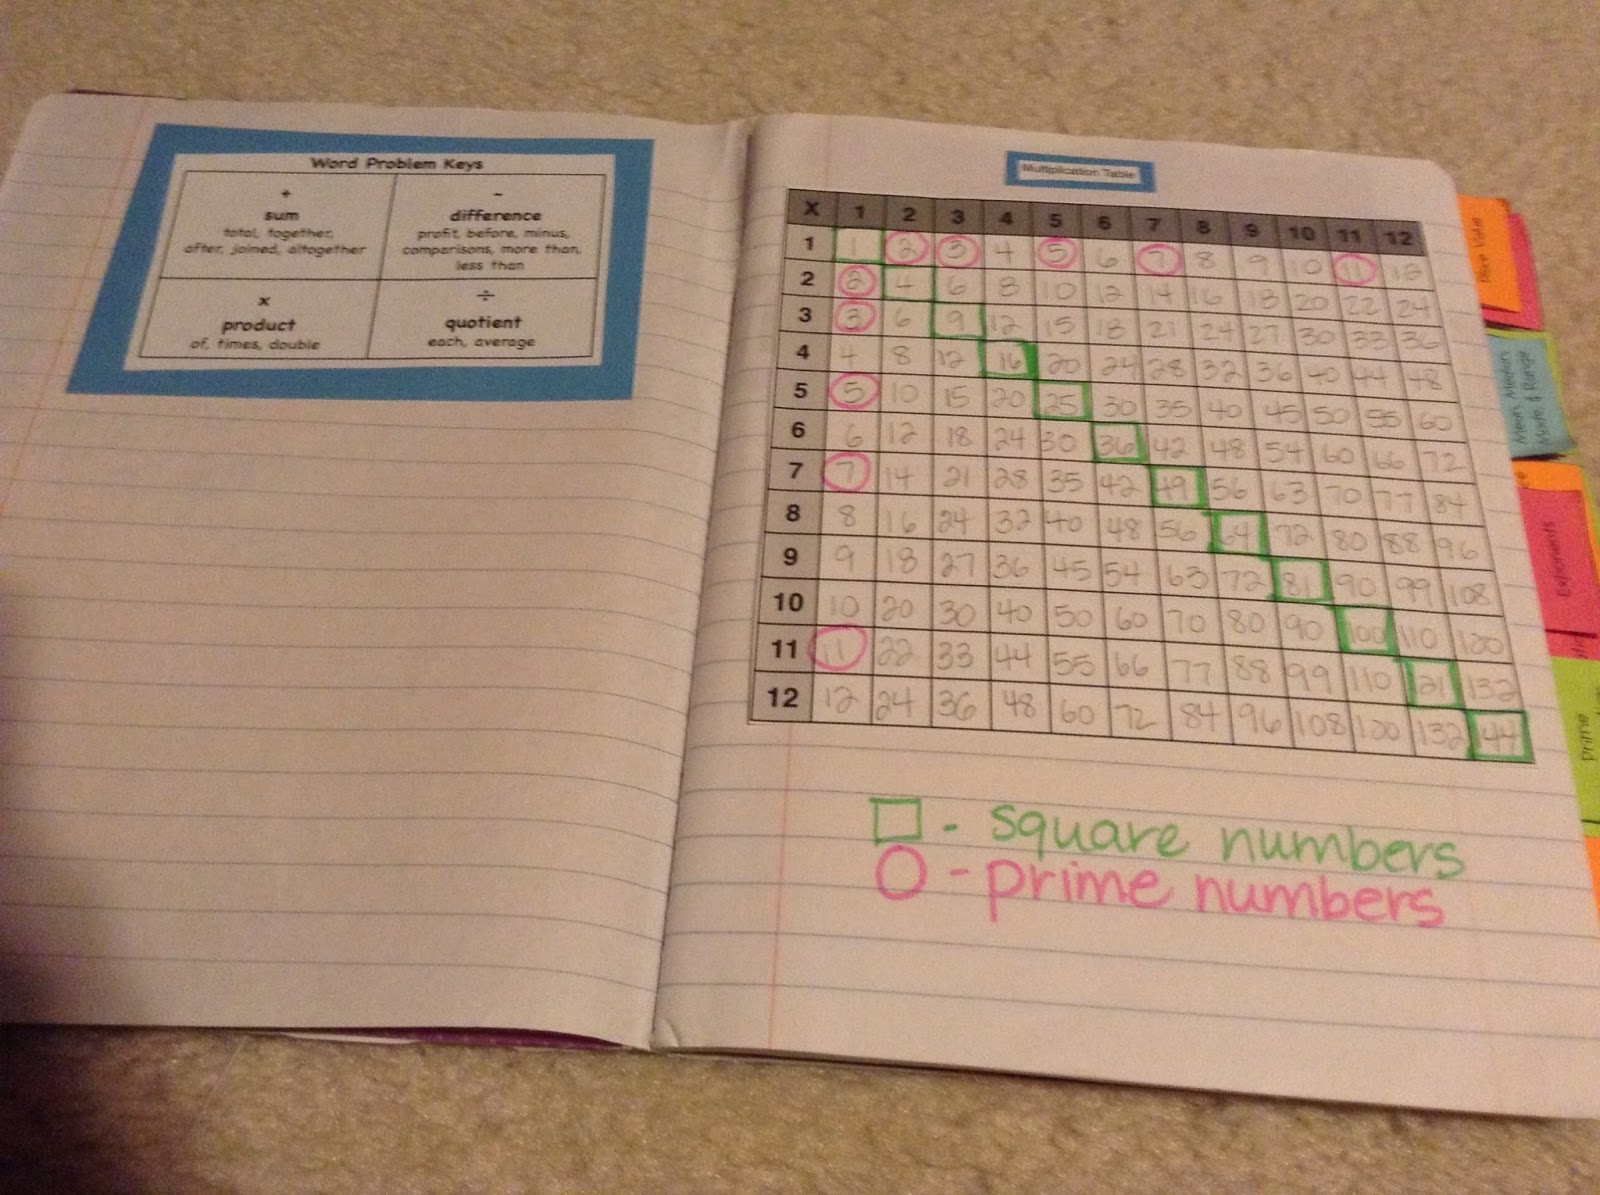 Word Problem Keys
+ -
sum difference
total, together, profit, before, minus,
after, joined, altogether comparisons, more than,
less than
x ÷
product quotient
of, times, double each, average
Multiplication Table
X 1 2 3 4 5 6 7 8 9 10 11 12
1 1 2 3 4 5 6 7 8 9 10 11 12
2 2 4 6 8 10 12 14 16 18 20 22 24
3 3 6 9 12 15 18 21 24 27 30 33 36
4 4 8 12 16 20 24 28 32 36 40 44 48
5 5 10 15 20 25 30 35 40 45 50 55 60
6 6 12 18 24 30 36 42 48 54 60 66 72
7 7 14 21 28 35 42 49 56 63 70 77 84
8 8 16 24 32 40 48 56 64 72 80 88 96
9 9 18 27 36 45 54 63 72 81 90 99 108
10 10 20 30 40 50 60 70 80 90 100 110 120
11 11 22 33 44 55 66 77 88 99 110 121 132
12 12 24 36 48 60 72 84 96 108 120 132 144
- square numbers
- prime numbers
Place Value
Mean, Median
Mode, & Range
Exponents
Prime